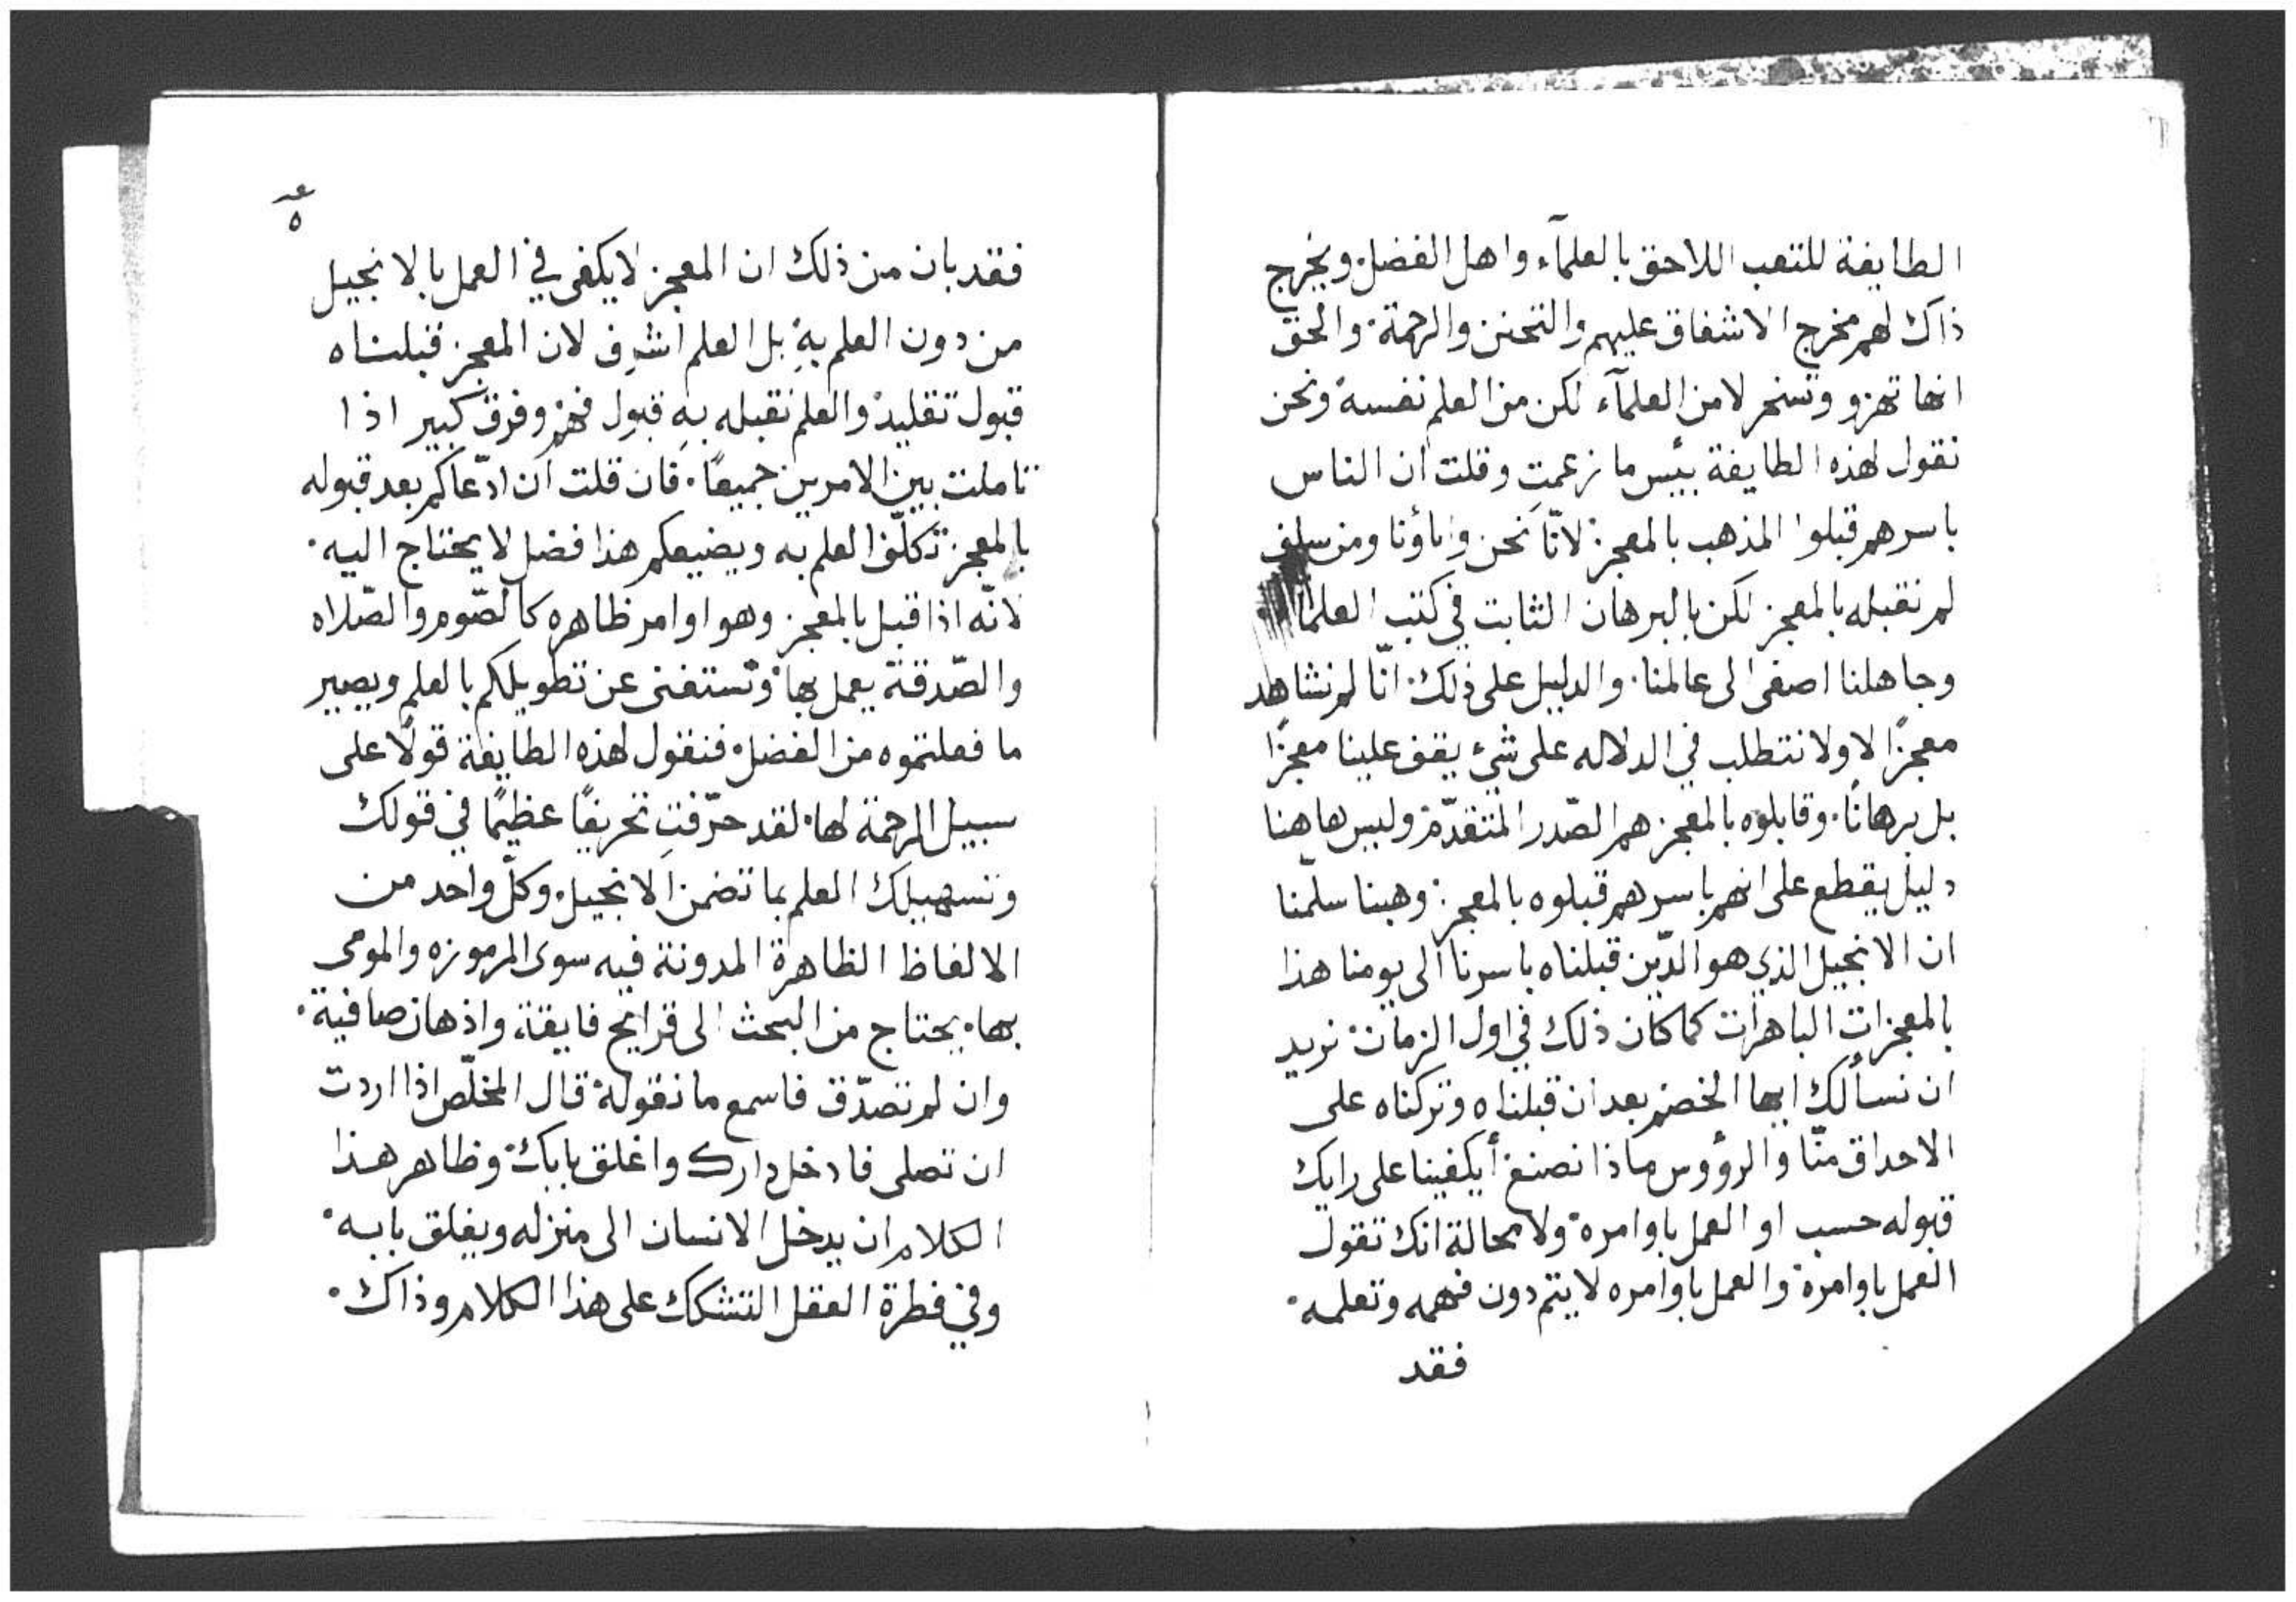 الطايفة للتعب اللاحق بالعلمآء واهل الفضل. ويخرج
ذاك لهم مخرج الاشفاق عليهم والتحنن والرحمة. والحق
انها تهزو وتسخر لا من العلمآء لكن من العلم نفسه. ونحن
نقول لهذه الطايفة بئيس ما زعمتِ وقلت ان الناس
باسرهم قبلوا المذهب بالمعجز. لانّا نحن واباؤنا ومن سلف
لم نقبله بالمعجز لكن بالبرهان الثابت في كتب العلما.
وجاهلنا اصغى الى عالمنا. والدليل على ذلك. انّا لم نشاهد
معجزًا لا ولا نتطلب في الدلاله على شئ يقف علينا معجزًا
بل برهانًا. وقابلوه بالمعجز هم الصّدر المتقدّم. وليس هاهنا
دليل يقطع على انهم باسرهم قبلوه بالمعجز. وهبنا سلّمنا
ان الانجيل الذي هو الدّين قبلناه باسرنا الى يومنا هذا
بالمعجزات الباهرات كما كان ذلك في اول الزمان. نريد
ان نسألك ايها الخصم بعد ان قبلناه وتركناه على
الاحداق منّا والرؤوس ماذا نصنع. أيكفينا على رايك
قبوله حسب او العمل باوامره. ولا محالة انك تقول
العمل باوامره. والعمل باوامره لا يتم دون فهمه وتعلمه.
فقد
٥
فقد بان من ذلك ان المعجز لا يكفى في العمل بالانجيل
من دون العلم بهِ. بل العلم اشرف لان المعجز قبلناه
قبول تقليد. والعلم نقبله بهِ قبول فهم. وفرق كبير اذا
تاملت بين الامرين جميعًا. فان قلت ان ادّعاكم بعد قبوله
بالمعجز تكلّف العلم به ويضيعكم هذا فضل لا يحتاج اليه.
لانّه اذا قبل بالمعجز وهو اوامر ظاهره كالصّوم والصّلاه
والصّدقة يعمل بها. وتستغنى عن تطويلكم بالعلم ويصير
ما فعلتموه من الفضل. فنقول لهذه الطايفة قولًا على
سبيل الرحمة لها. لقد حرّفتِ تحريفًا عظيمًا في قولك
وتسهيلك العلم بما تضمن الانجيل. وكلّ واحد من
الالفاظ الظاهرة المدونة فيه سوى المرموزه والمومى
بها. يحتاج من البحث الى قرايح فايقة، واذهان صافية.
وان لم تصدّق فاسمع ما نقوله. قال المخلّص اذا اردت
ان تصلى فادخل دارك واغلق بابك. وظاهر هذا
الكلام ان يدخل الانسان الى منزله ويغلق بابه.
وفي فطرة العقل التشكك على هذا الكلام وذاك.